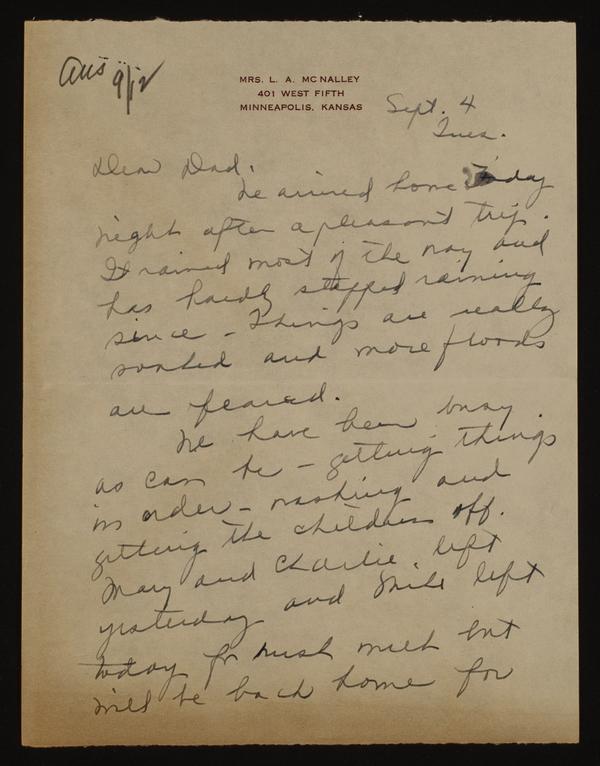 Ans 9/12
MRS. L. A. MCNALLEY
401 WEST FIFTH
MINNEAPOLIS, KANSAS
Sept. 4
Tues.
Dear Dad:
We arrived home Friday
night after a pleasant trip.
It rained most of the way and
has hardly stopped raining
since - Things are really
soaked and more floods
are feared.
We have been busy
as can be - getting things
in order - washing and
getting the children off.
Mary and Charlie left
yesterday and Mike left
today for rush week but
will be back home for